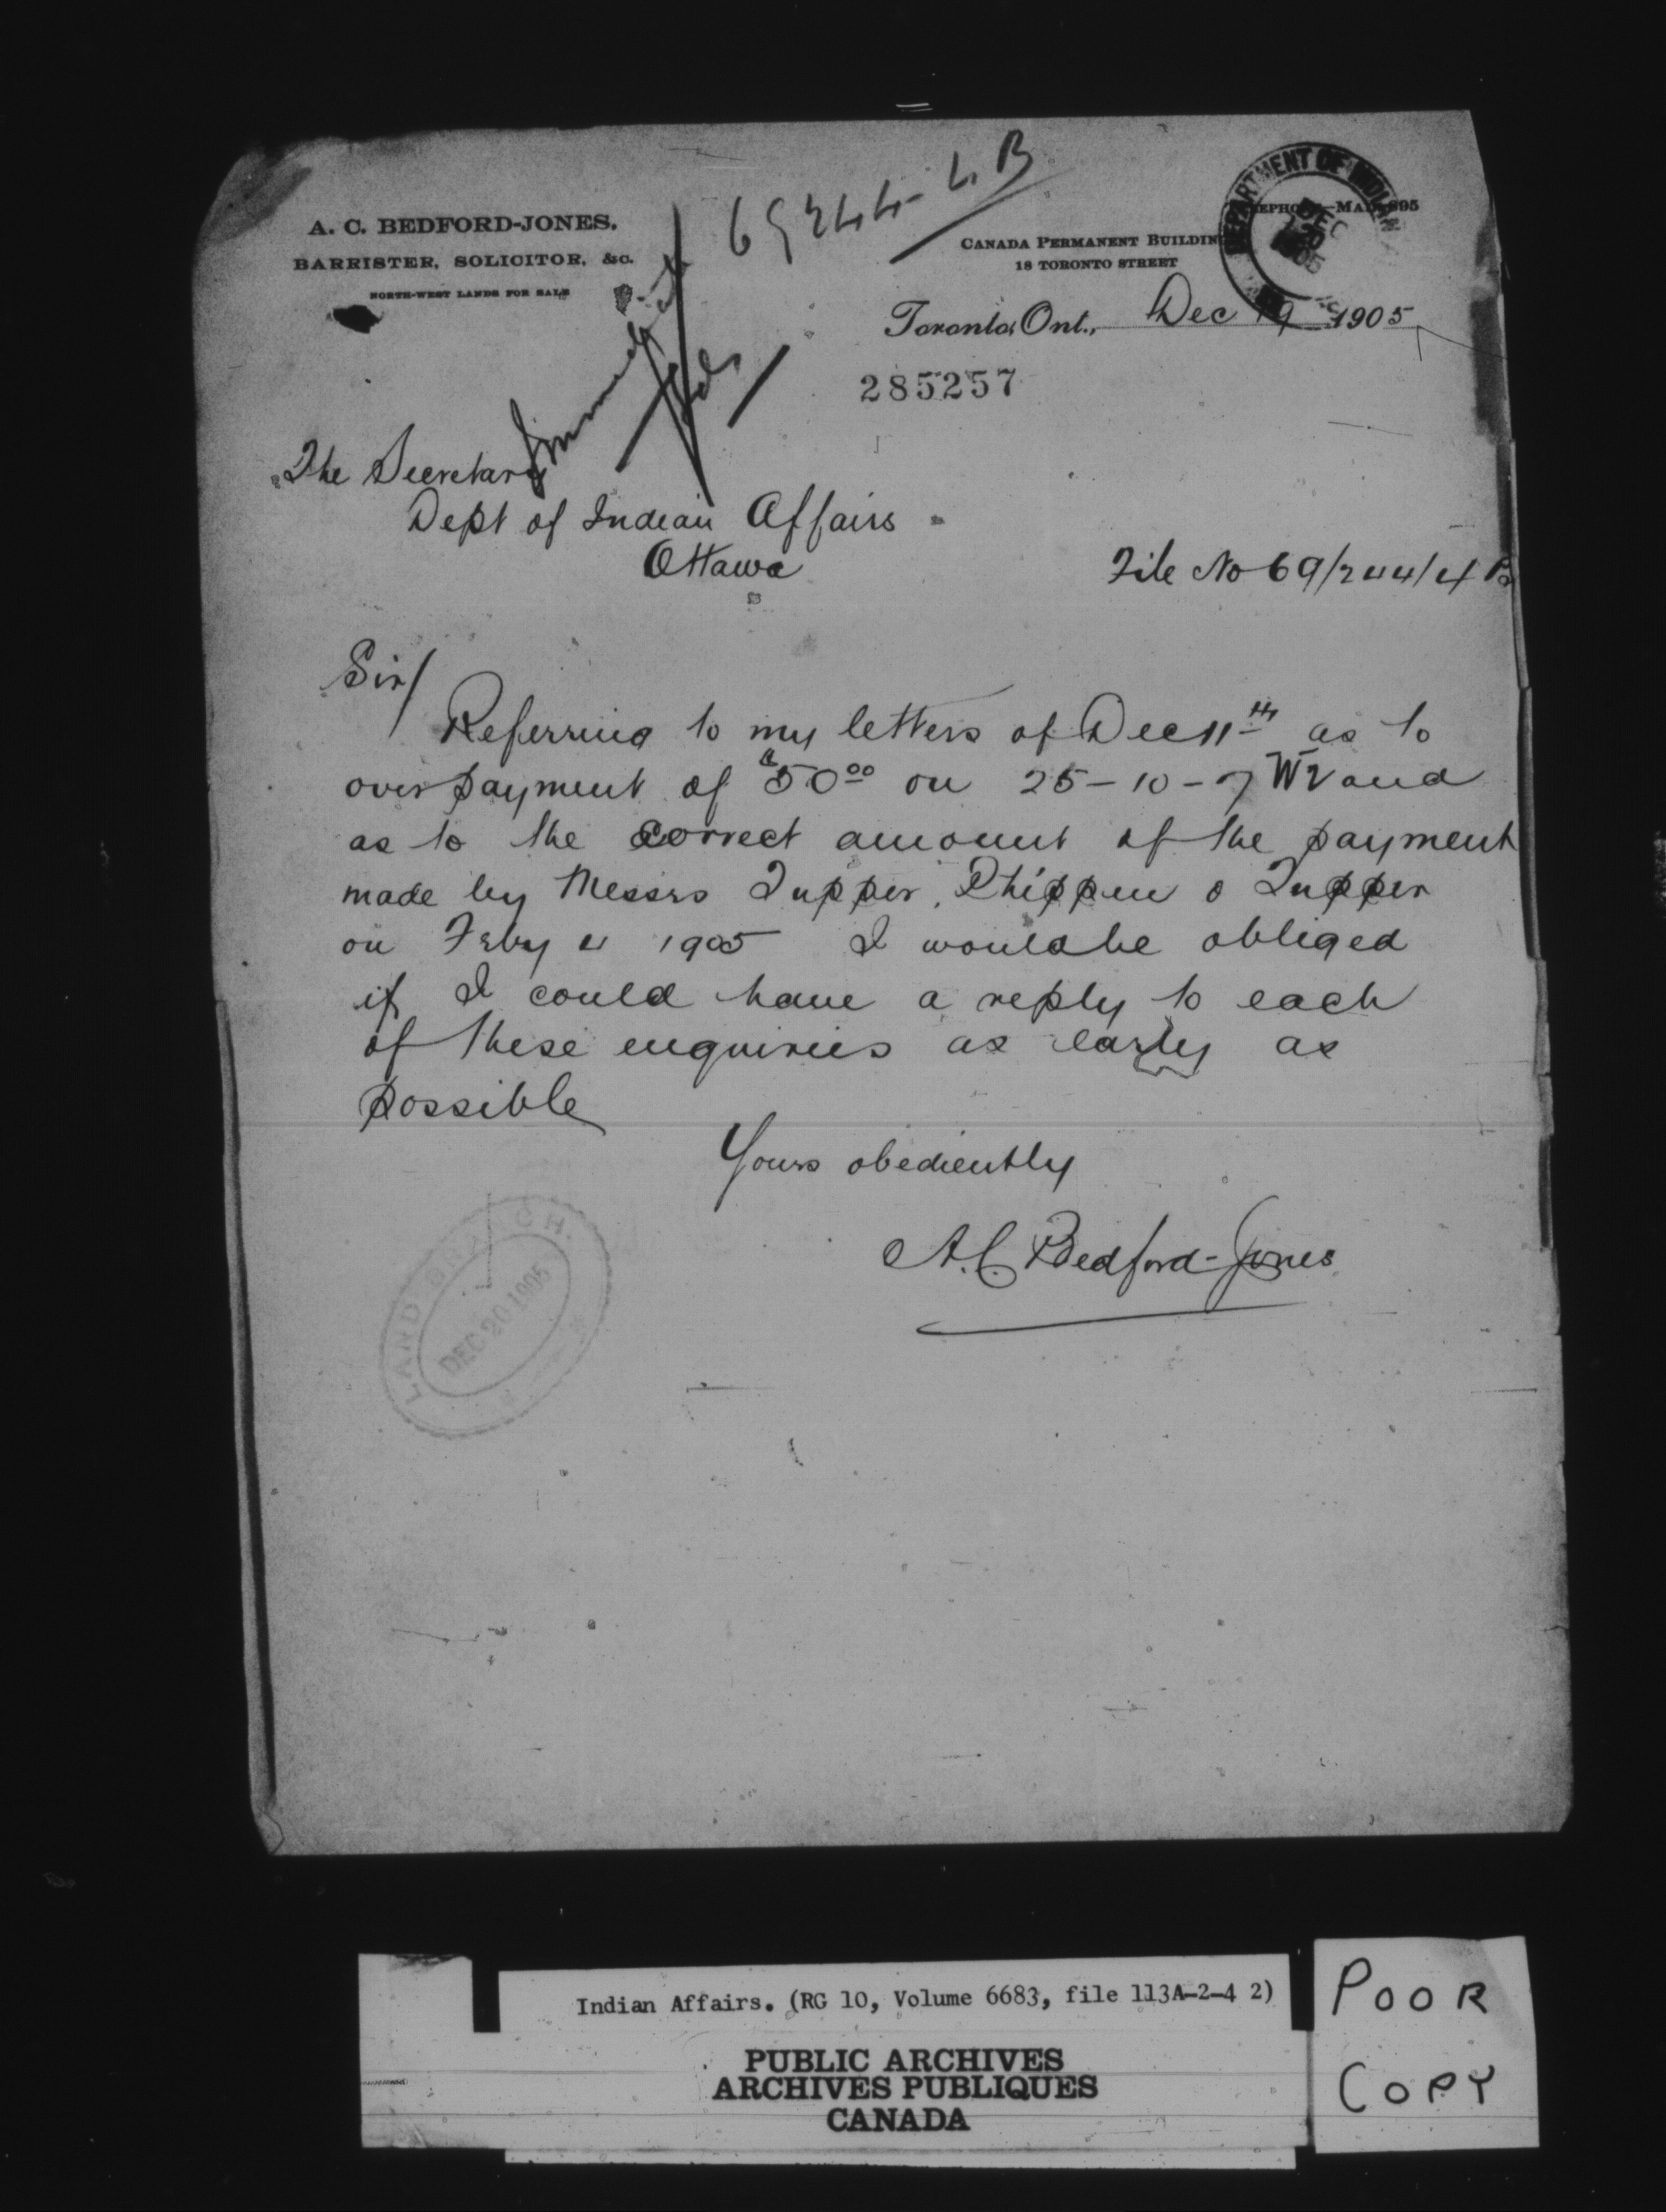 69244-4B
A. C. BEDFORD-JONES.
BARRISTER, SOLICITOR, &c.
NORTH-WEST LANDS FOR SALE
DEPARTMENT OF INDIAN
DEC 20 1905
CANADA PERMANENT BUILDING
18 TORONTO STREET
Toronto, Ont., Dec 19 1905
285257
Immediate
The Secretary
Dept of Indian Affairs
Ottawa
File No 69/244/4 B
Sir/
Referring to my letters of Dec 11th as to
over payment of $50.00 on 25-10-7 W2 and
as to the correct amount of the payment
made by Messrs Tupper, Phippen & Tupper
on Feby 1905 I would be obliged
if I could have a reply to each
of these enquiries as early as
possible
Yours obediently
A.C. Bedford-Jones
LAND BRANCH
DEC 20 1905
Indian Affairs. (RG 10, Volume 6683, file 113A-2-4 2)
PUBLIC ARCHIVES
ARCHIVES PUBLIQUES
CANADA
POOR
COPY